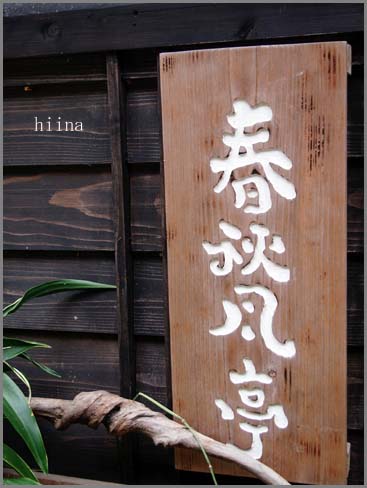 hiina
春秋風亭